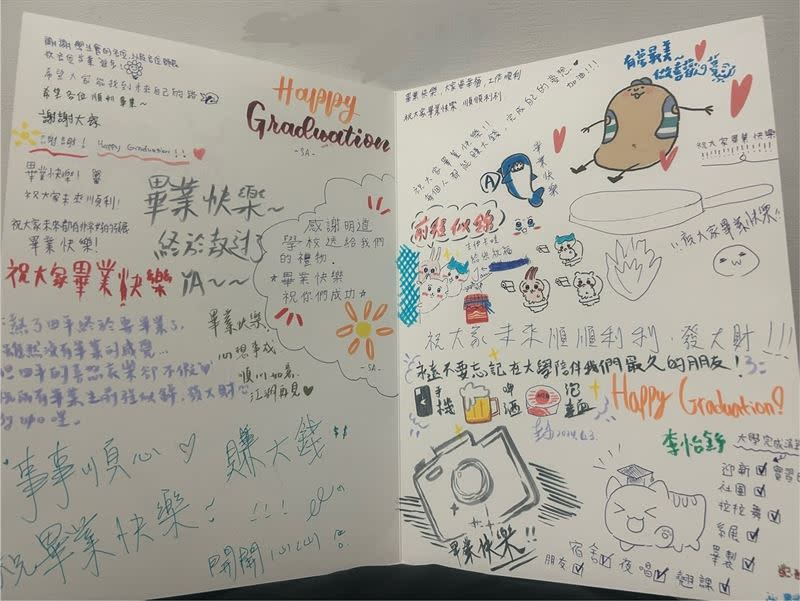 希望大家能找到未來自己的路
希望各位順利畢業~
謝謝大家
謝謝! Happy Graduation!!
畢業快樂!
祝大家未來順利!
畢業快樂!
祝大家畢業快樂
Happy
Graduation
-SA-
畢業快樂~
終於熬過了
YA~~
感謝明道
學校送給我們
的禮物.
畢業快樂
祝你們成功
-SA-
畢業快樂
心想事成
順川如意
江湖再見
熬了四年終於要畢業了,
雖然沒有畢業的感覺...
事事順心♡賺大錢$$
祝畢業快樂~!!!
開開心心!
畢業快樂,大家畢業後,工作順利
祝大家畢業快樂 順順利利
祝大家畢業快樂!!
每個人都能賺大錢,完成自己的夢想
加油!!!
有夢最美~
A
畢業快樂
祝大家畢業快樂
前程似錦
吉伊卡哇
給您祝福
祝大家畢業快樂
祝大家未來順順利利,發大財!!!
永遠不要忘記在大學陪伴我們最久的朋友!
手機
啤酒
泡麵
2024.6.3.
Happy Graduation!
畢業快樂!!
李怡錚
大學完成清單
迎新☑
社團☑
拉拉舞☑
系展☑
畢製☑
朋友☑ 宿舍☑ 夜唱☑ 翹課☑